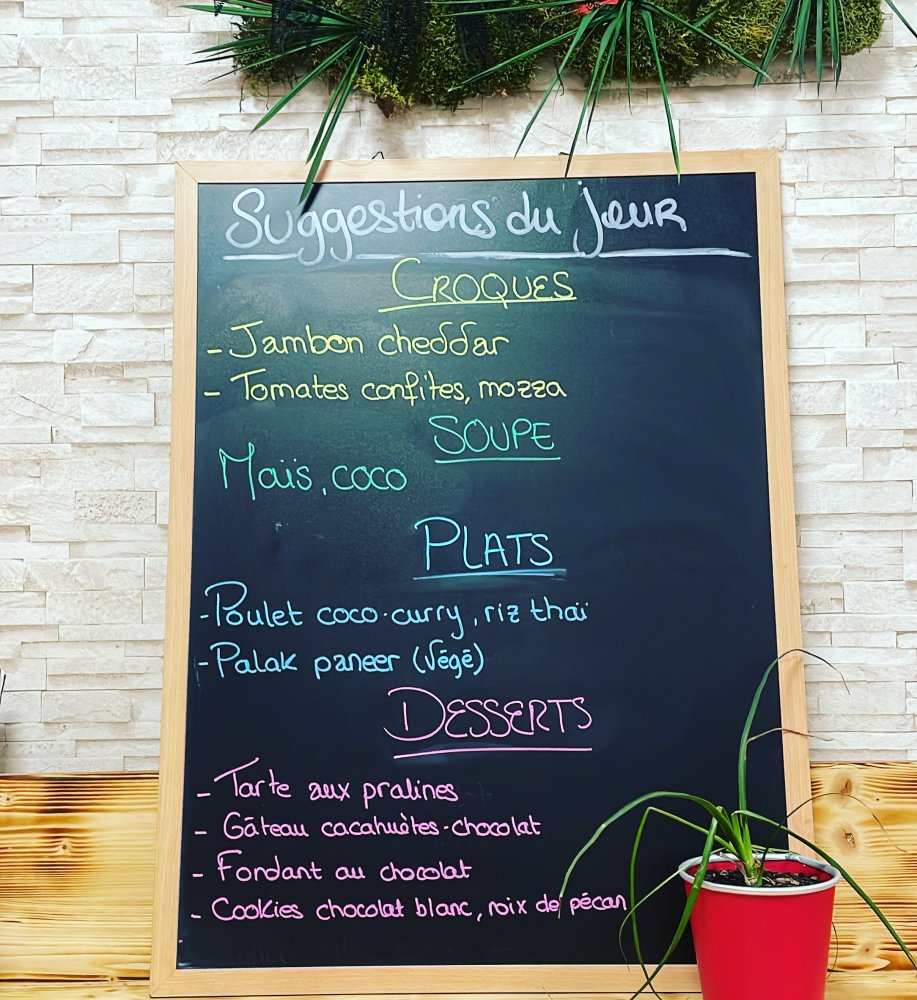 Suggestions du jour
CROQUES
- Jambon cheddar
- Tomates confites, mozza
SOUPE
Maïs, coco
PLATS
- Poulet coco-curry, riz thaï
- Palak paneer (Végé)
DESSERTS
- Tarte aux pralines
- Gâteau cacahuètes-chocolat
- Fondant au chocolat
- Cookies chocolat blanc, noix de pécan